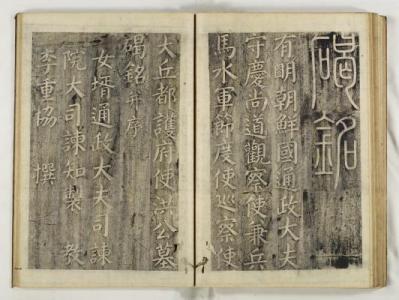 碣銘
有明朝鮮國通政大夫
守慶尚道觀察使兼兵
馬水軍節度使巡察使
大丘都護府使洪公墓
碣銘并序
女壻通政大夫司諫
院大司諫知製教
李重協 撰